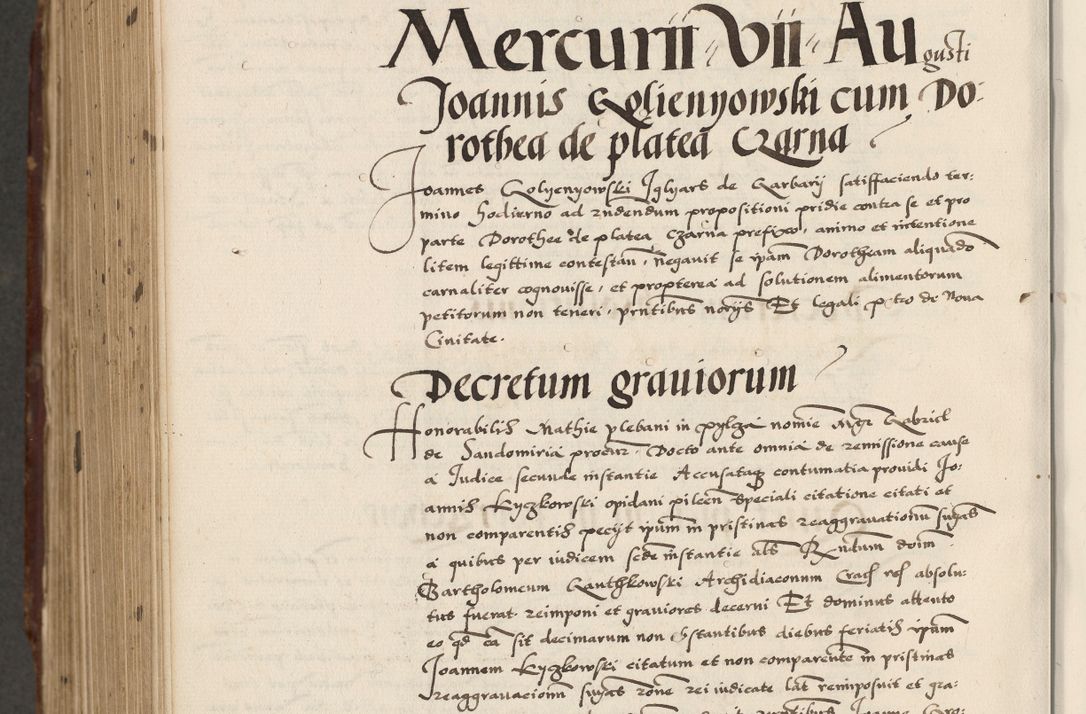 Mercurii vii Augusti
Joannis Golienyowski cum Do-
rothea de platea Czarna
Joannes Golyenyowski Iglyars de Garbarij satisfaciendo ter-
mino hodierno ad rndendum propositioni pridie contra se et pro
parte Dorothee de platea Czarna prefixo, animo et intentione
litem legittime contestan, negauit se ipam Dorotheam aliquando
carnaliter cognouisse, et propterea ad solutionem alimentorum
petitorum non teneri, pntibus notijs Et legali petro de Noua
Ciuitate.
Decretum grauiorum
Honorabilis Mathie plebani in pylcza nomie Mgr Gabriel
de Sandomiria procur. Docto ante omnia de remissione cause
a Iudice secunde instantie Accusataq contumatia prouidi Jo-
annis Kyczkowski opidani pilcen speciali citatione citati et
non comparentis pecijt ipum in pristinas reaggrauationum suas
a quibus per iudicem scde instantie als Rndum doim
Bartholomeum Ganthkowski Archidiaconum Crac res absolu-
tus fuerat reimponi et grauiores decerni Et dominus attento
eo qd ca sit decimarum non obstantibus diebus feriatis ipum
Joannem Kyczkowski citatum et non comparente in pristinas
reaggrauacionum suas rone rei iudicate lat reimposuit et gra-